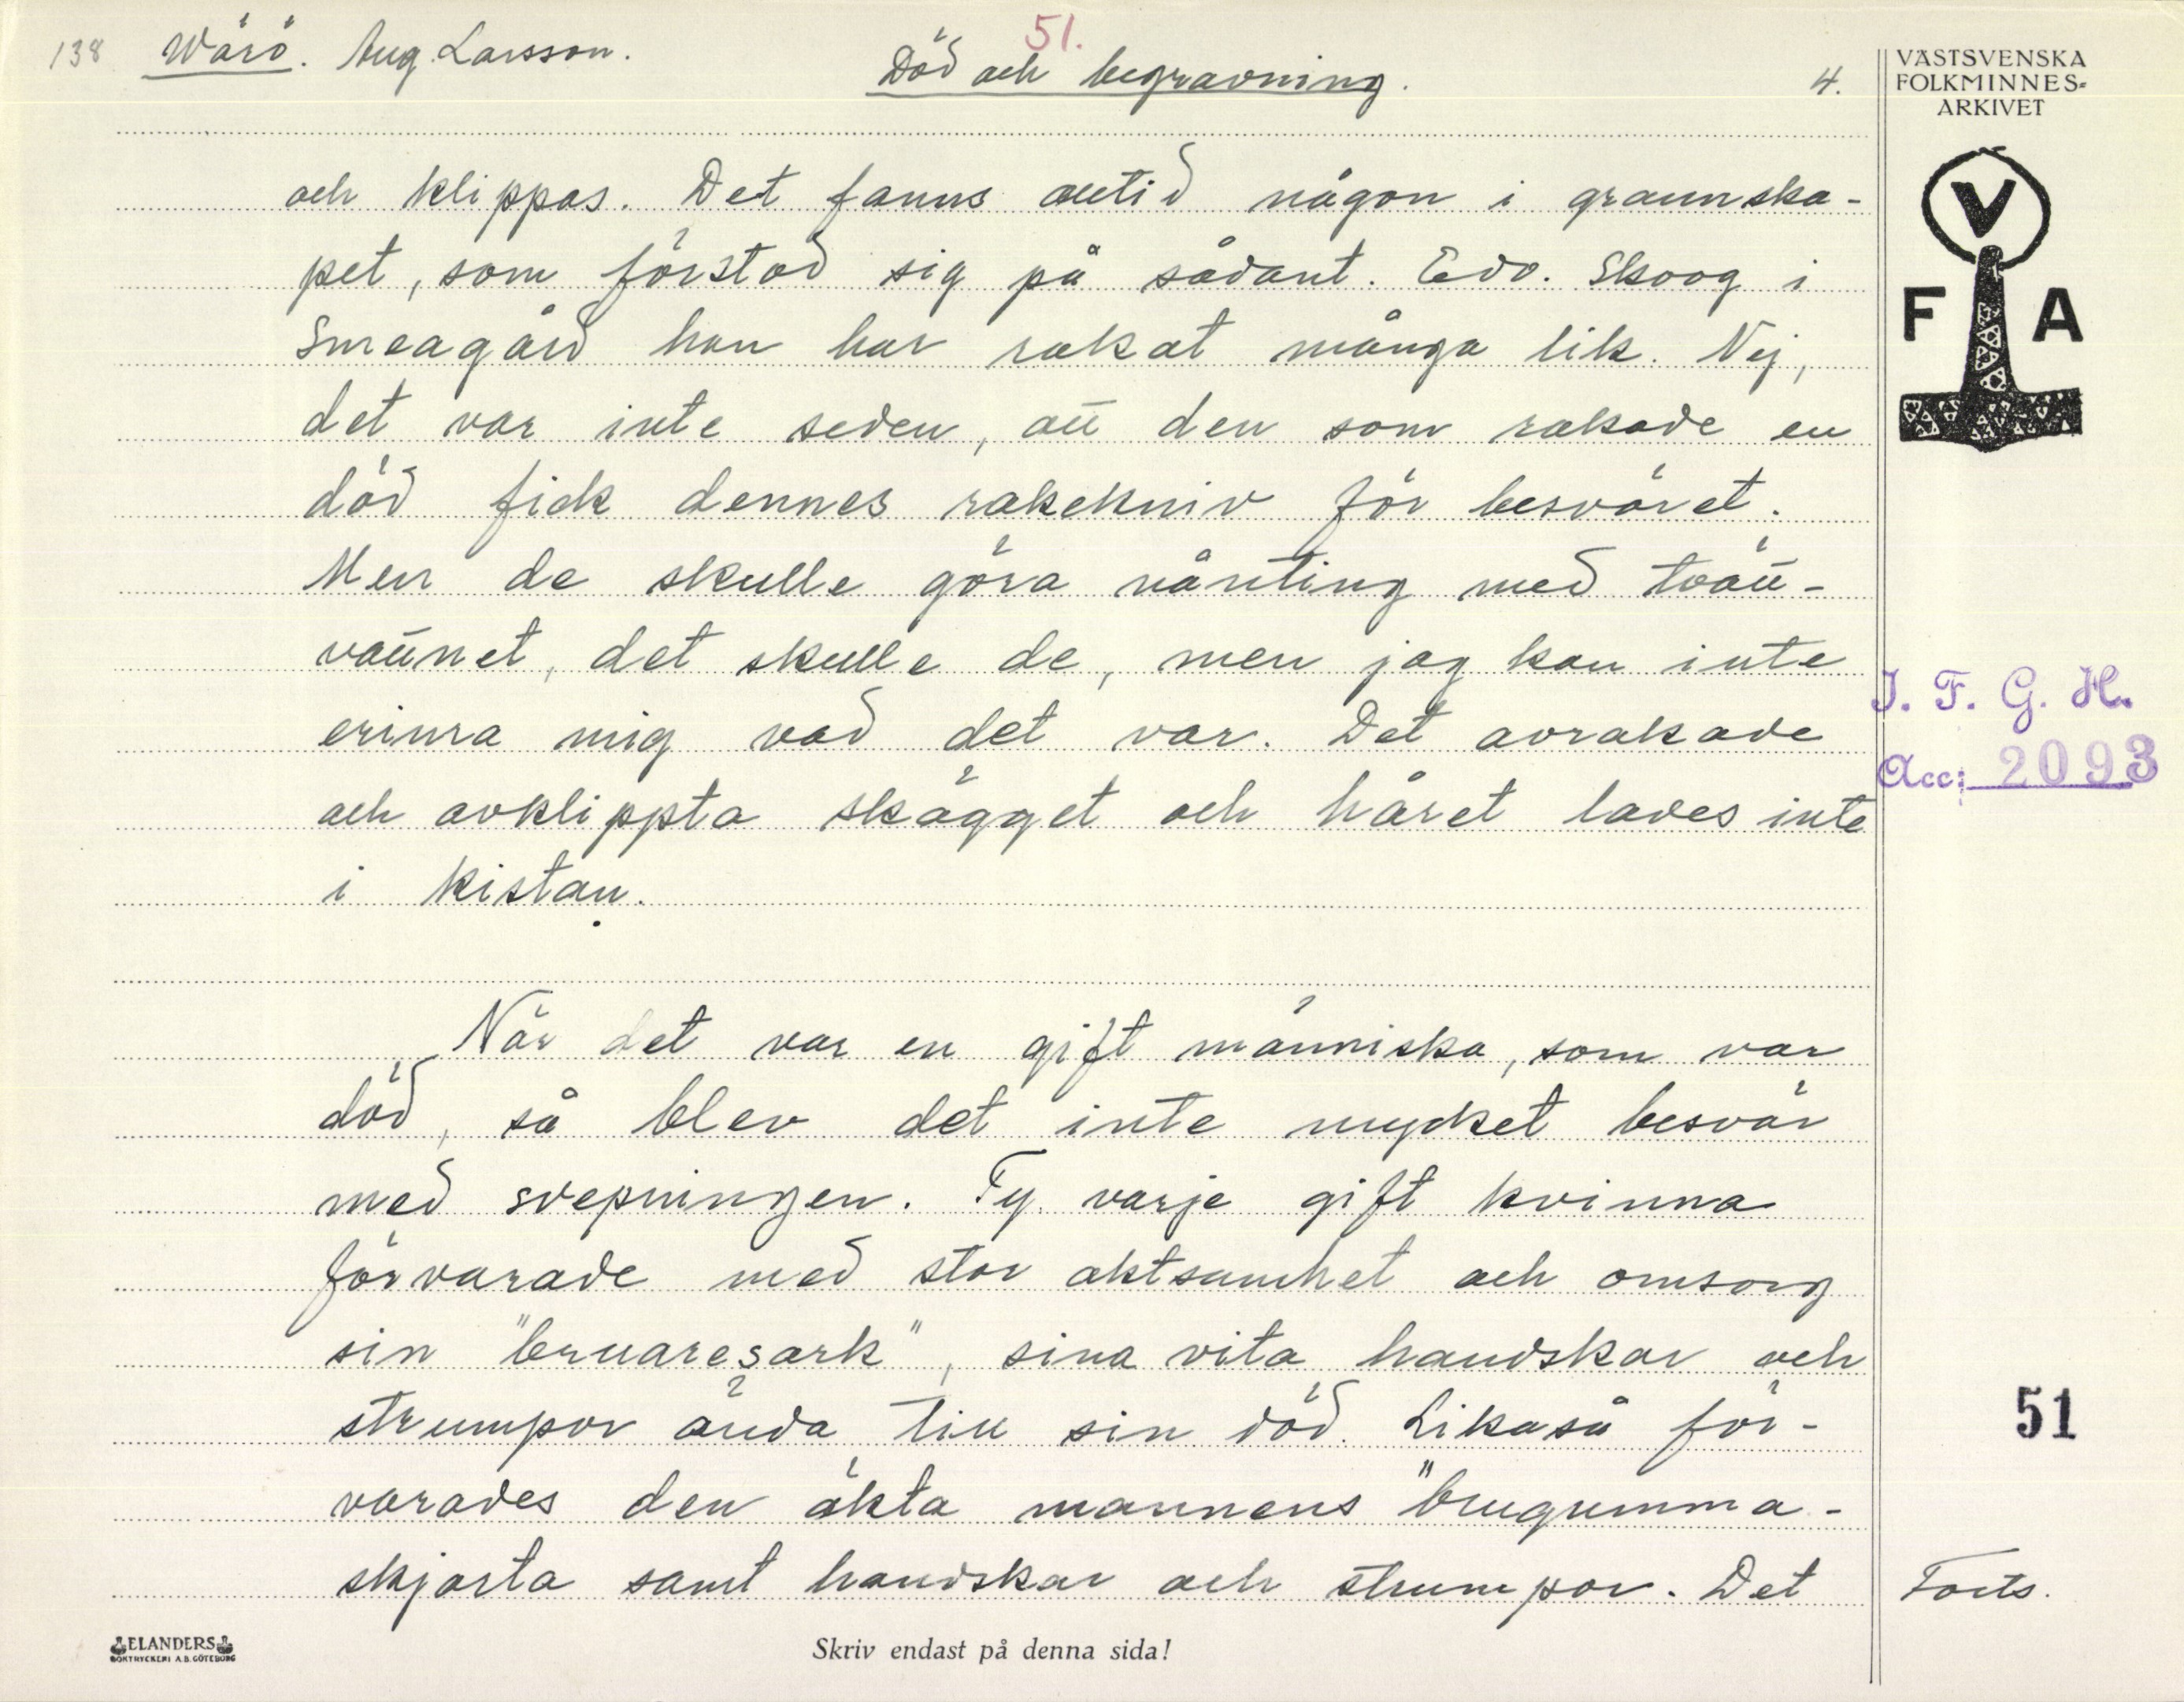 138 Wärö. Aug. Larsson.
51.
Död och begravning.
4.
VÄSTSVENSKA
FOLKMINNES-
ARKIVET
V
F A
och klippas. Det fanns alltid någon i grannska-
pet, som förstod sig på sådant. Edv. Skoog i
Smeagård han har rakat många lik. Nej,
det var inte seden, att den som rakade en
död fick dennes rakekniv för besväret.
Men de skulle göra nånting med tvätt-
vattnet, det skulle de, men jag kan inte
erinra mig vad det var. Det avrakade
och avklippta skägget och håret lades inte
i kistan.
I. F. G. H.
Acc: 2093
När det var en gift människa, som var
död, så blev det inte mycket besvär
med svepningen. Ty varje gift kvinna
förvarade med stor aktsamhet och omsorg
sin "bruaresark", sina vita handskar och
strumpor ända till sin död. Likaså för-
varades den äkta mannens "brugumma-
skjorta samt handskar och strumpor. Det
51
Forts.
ELANDERS
BOKTRYCKERI A.B. GÖTEBORG
Skriv endast på denna sida!